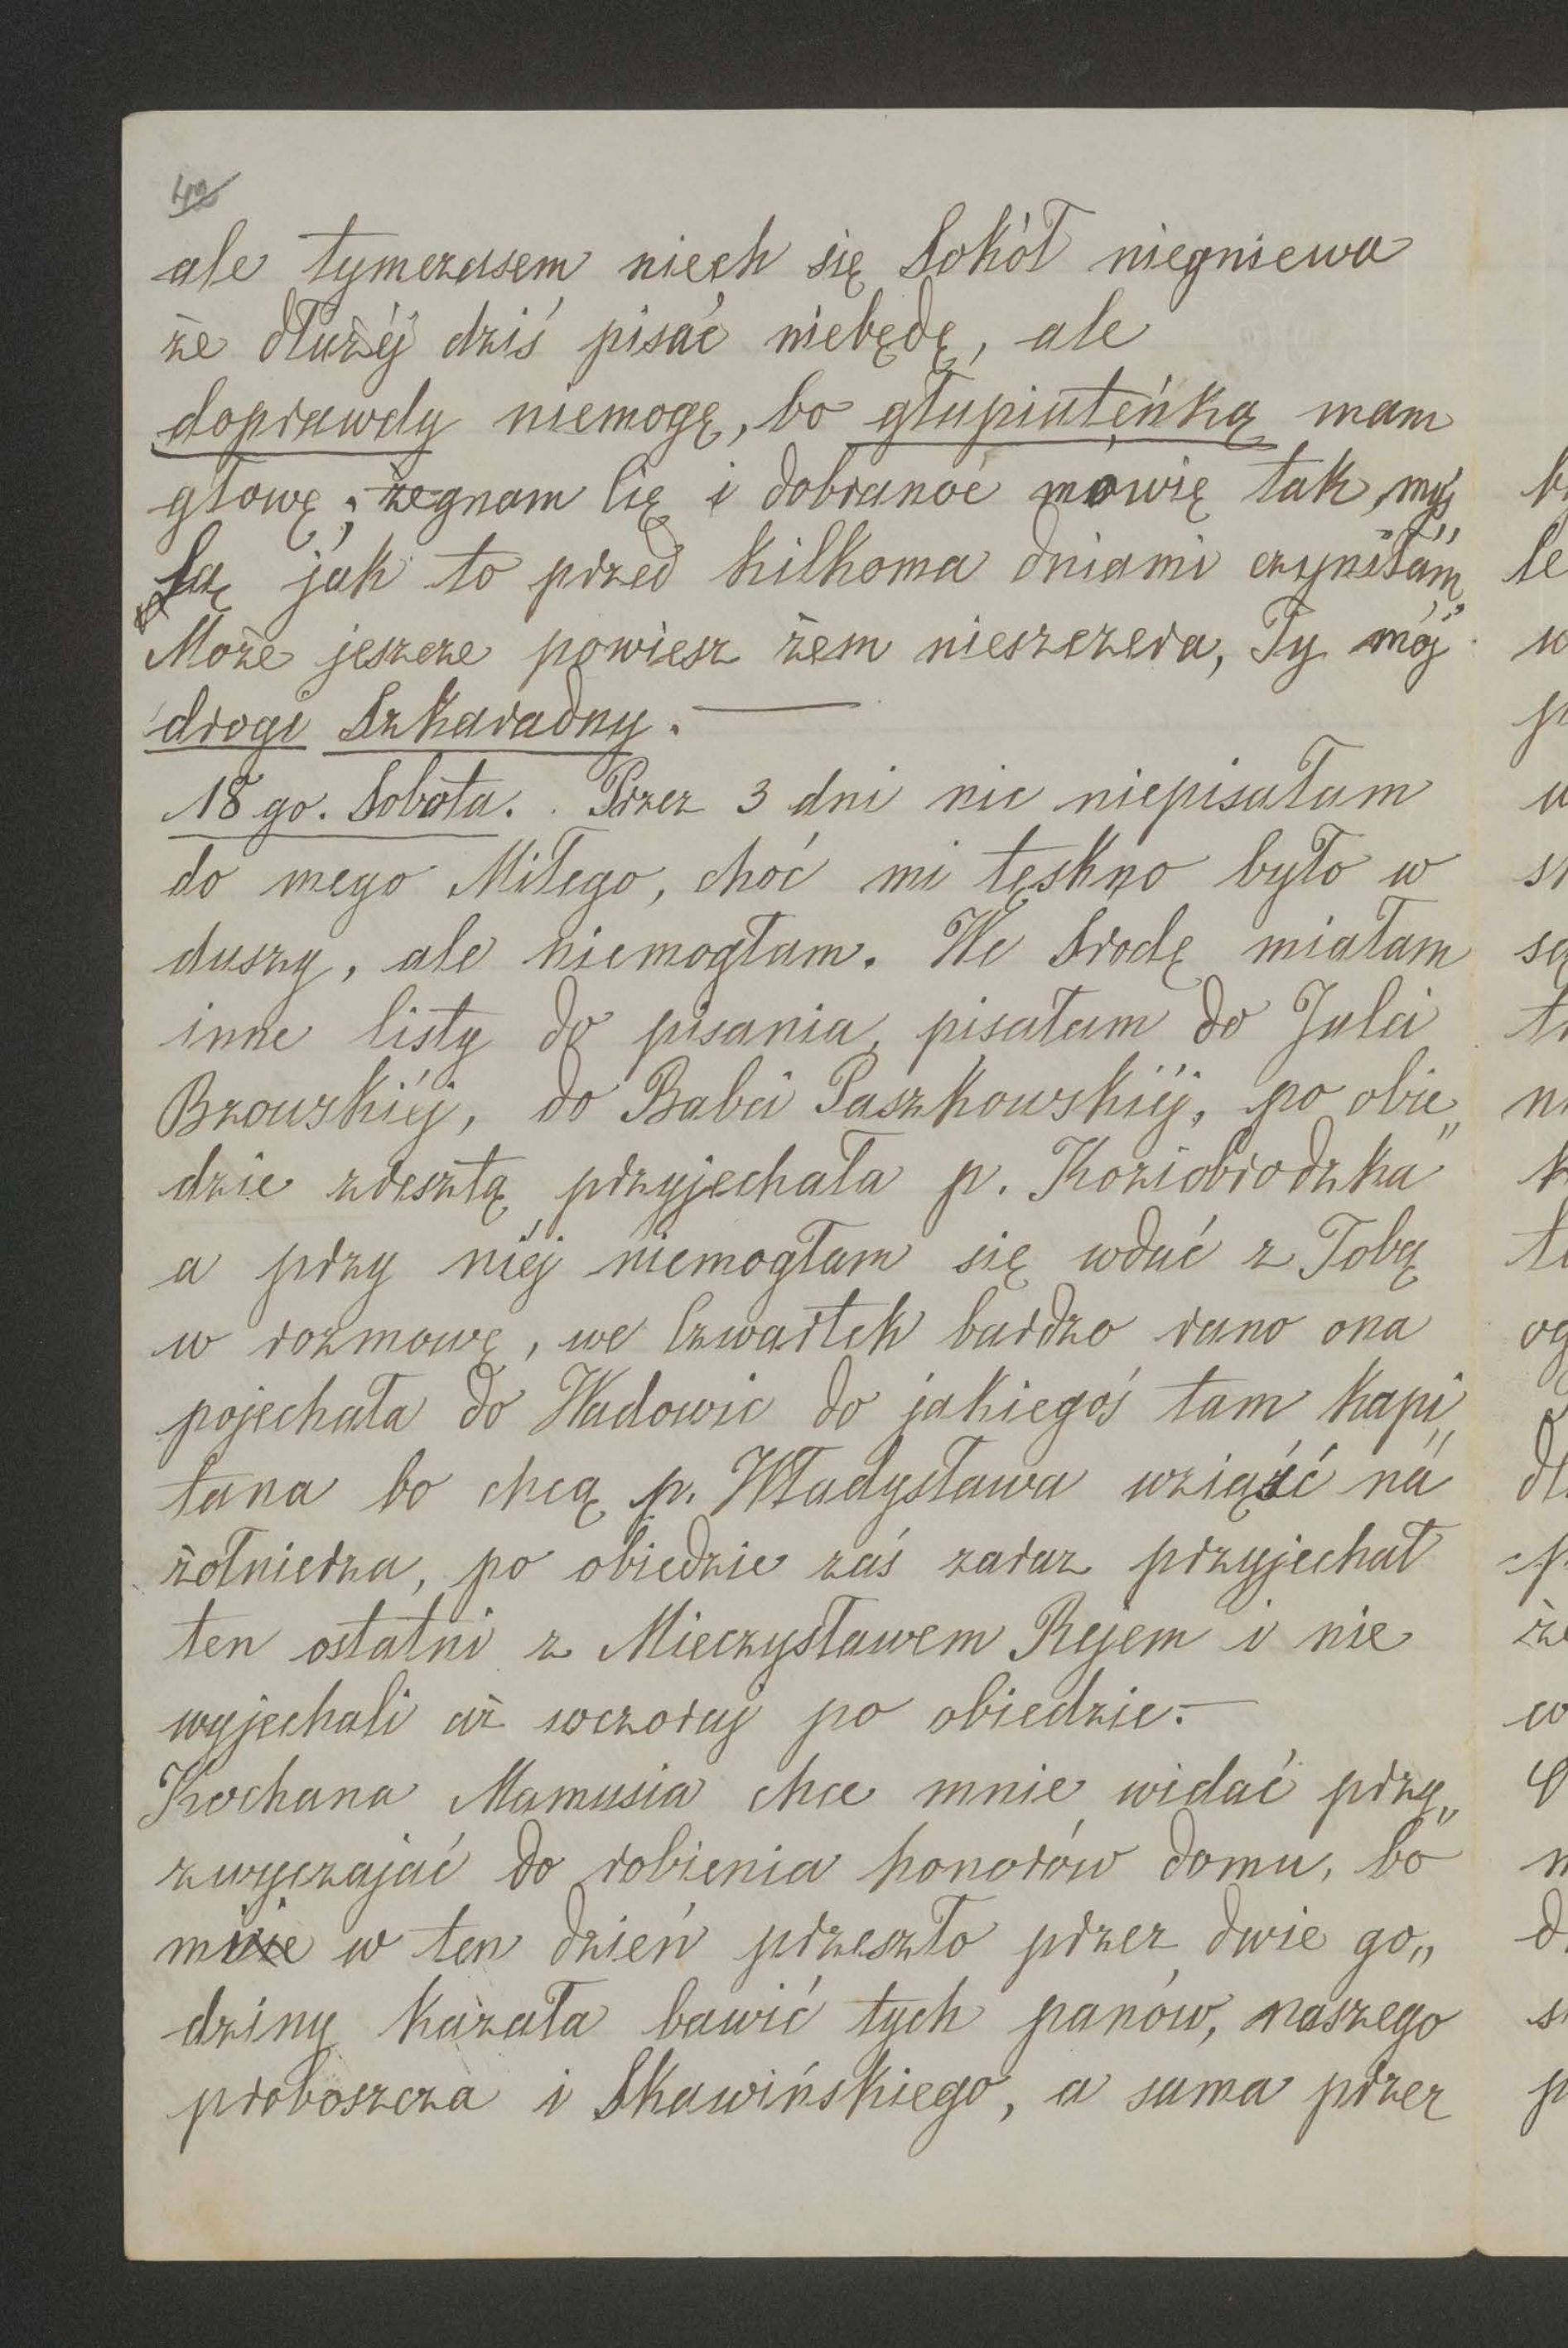 ale tymczasem niech się Sokół niegniewa
że dłużéj dziś pisać niebędę, ale
doprawdy niemogę, bo głupiuteńką mam
głowę; żegnam Cię i dobranoc mówię tak, myś„
lą jak to przed kilkoma dniami czyniłam„
Może jeszcze powiesz żem nieszczera, Ty mój
drogi Szkaradny. —
18go. Sobota. Przez 3 dni nic niepisałam
do mego Miłego, choć mi tęskno było w
duszy, ale niemogłam. We Srodę miałam
inne listy do pisania, pisałam do Julci
Bzowskiéj, do Babci Paszkowskiéj, po obie„
dzie zresztą przyjechała p. Koziobrodzka
a przy niéj niemogłam się wdać z Tobą
w rozmowę, we Czwartek bardzo rano ona
pojechała do Wadowic do jakiegoś tam kapi„
tana bo chcą p. Władysława wziąść na
żołnierza, po obiedzie zaś zaraz przyjechał
ten ostatni z Mieczysławem Rejem i nie
wyjechali aż wczoraj po obiedzie. —
Kochana Mamusia chce mnie widać przy„
zwyczajać do robienia honorów domu, bo
mnie w ten dzień przeszło przez dwie go„
dziny kazała bawić tych panów, naszego
proboszcza i Skawińskiego, a sama przez